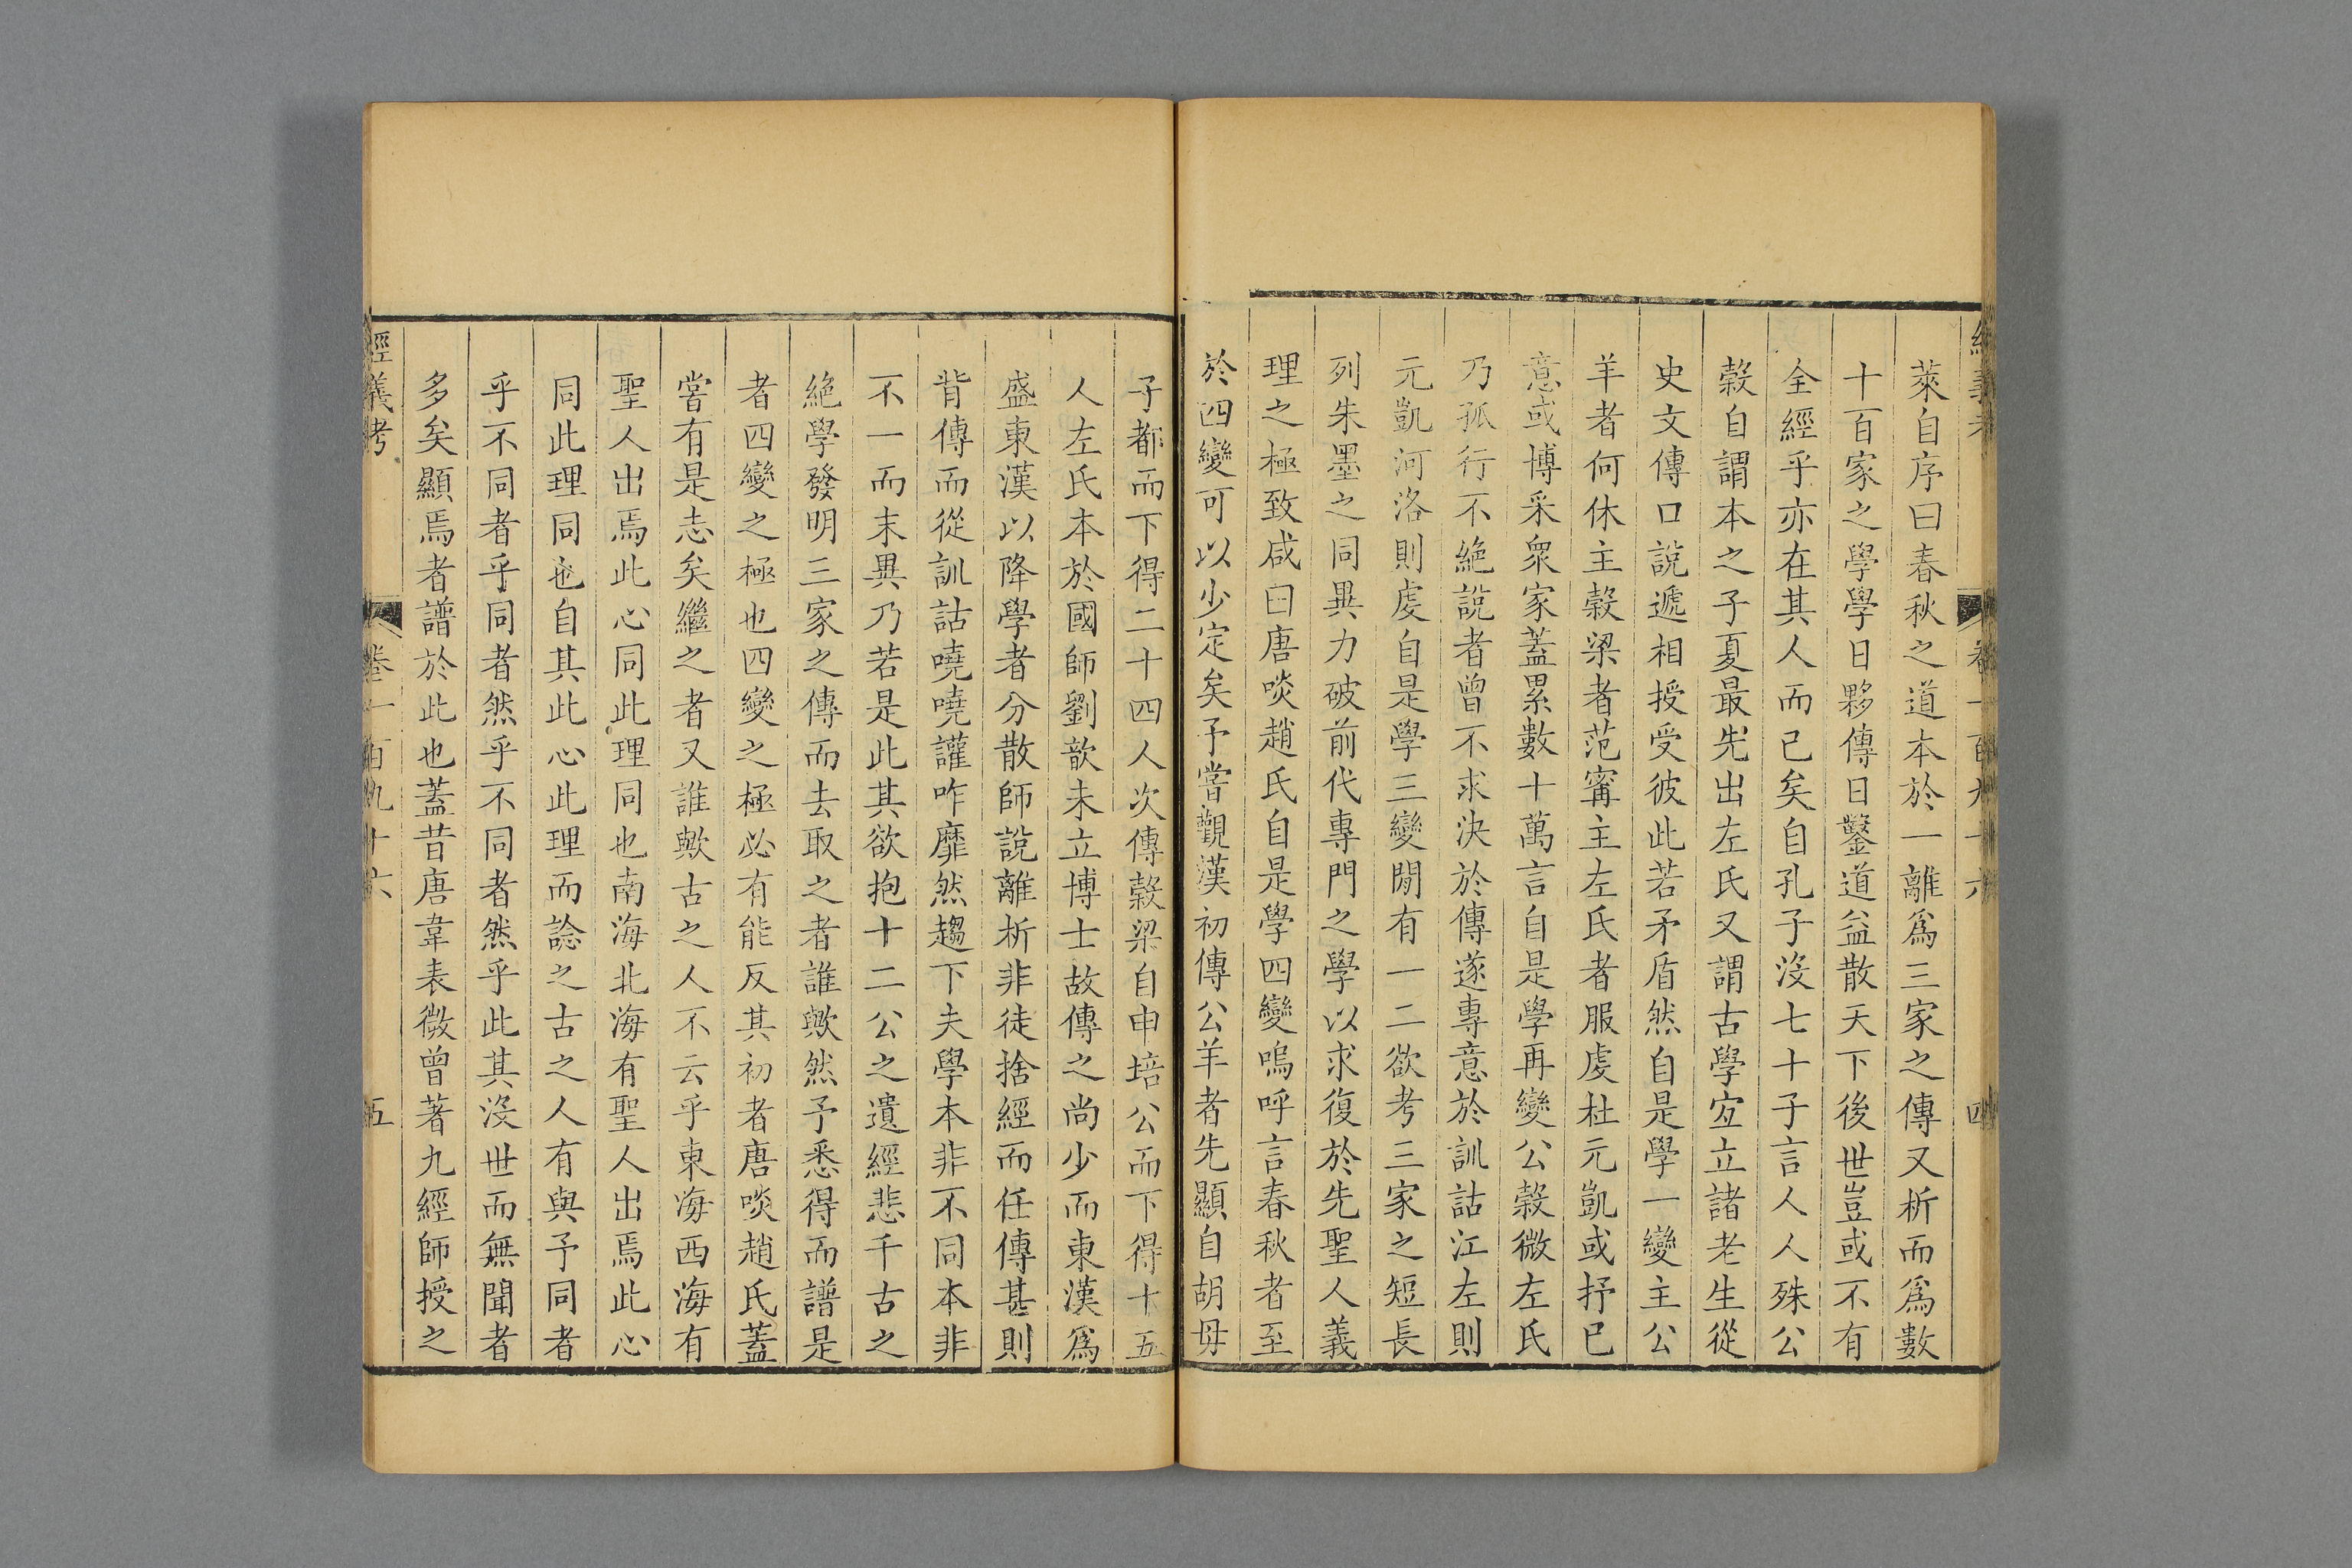 萊自序曰春秋之道本於一離爲三家之傳又析而爲數
十百家之學學日夥傳日鑿道益散天下後世豈或不有
全經乎亦在其人而已矣自孔子沒七十子言人人殊公
穀自謂本之子夏最先出左氏又謂古學宐立諸老生從
史文傳口說遞相授受彼此若矛盾然自是學一變主公
羊者何休主穀梁者范寗主左氏者服虔杜元凱或抒已
意或博采衆家蓋累數十萬言自是學再變公穀微左氏
乃孤行不絶說者曾不求決於傳遂專意於訓詁江左則
元凱河洛則虔自是學三變閒有一二欲考三家之短長
列朱墨之同異力破前代專門之學以求復於先聖人義
理之極致咸曰唐啖趙氏自是學四變嗚呼言春秋者至
於四變可以少定矣予嘗觀漢初傳公羊者先顯自胡毋
子都而下得二十四人次傳穀梁自申培公而下得十五
人左氏本於國師劉歆未立博士故傳之尚少而東漢爲
盛東漢以降學者分散師說離析非徒捨經而任傳甚則
背傳而從訓詁嘵嘵讙咋靡然趨下夫學本非不同本非
不一而末異乃若是此其欲抱十二公之遺經悲千古之
絶學發明三家之傳而去取之者誰歟然予悉得而譜是
者四變之極也四變之極必有能反其初者唐啖趙氏蓋
嘗有是志矣繼之者又誰歟古之人不云乎東海西海有
聖人出焉此心同此理同也南海北海有聖人出焉此心
同此理同也自其此心此理而諗之古之人有與予同者
乎不同者乎同者然乎不同者然乎此其沒世而無聞者
多矣顯焉者譜於此也蓋昔唐韋表微曾著九經師授之
經義考 卷一百九十六 五